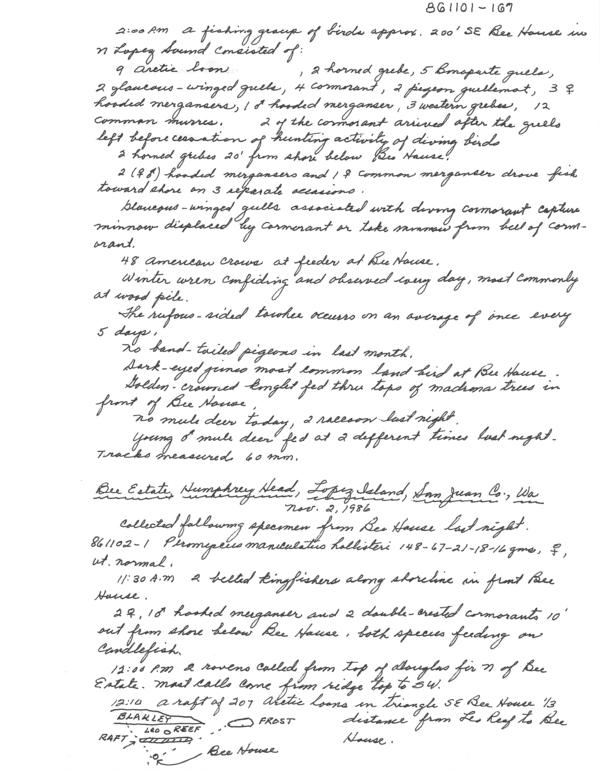 861101-167
2:00 P.M a fishing group of birds approx. 200' SE Bee House in
N Lopez Sound consisted of:
9 Arctic loon , 2 horned grebe, 5 Bonaparte gulls,
2 glaucous-winged gulls, 4 cormorant, 2 pigeon guillemot, 3 ♀
hooded mergansers, 1 ♂ hooded merganser, 3 western grebes, 12
common murres. 2 of the cormorant arrived after the gulls
left before cessation of hunting activity of diving birds
2 horned grebes 20' from shore below Bee House.
2 (♀ ♂) hooded mergansers and 1 ♀ common merganser drove fish
toward shore on 3 separate occasions.
Glaucous-winged gulls associated with diving cormorant capture
minnow displaced by cormorant or take minnow from bill of corm-
orant.
48 American crows at feeder at Bee House.
Winter wren confiding and observed every day, most commonly
at wood pile.
The rufous-sided towhee occurrs on an average of once every
5 days.
No band-tailed pigeons in last month.
Dark-eyed junco most common land bird at Bee House.
Golden-crowned kinglet fed thru tops of madrona trees in
front of Bee House.
No mule deer today, 2 raccoon last night.
Young ♂ mule deer fed at 2 different times last night.
Tracks measured 60 mm.
Bee Estate, Humphrey Head, Lopez Island, San Juan Co., Wa
Nov. 2, 1986
Collected following specimen from Bee House last night.
861102-1 Peromyscus maniculatus hollisteri 148-67-21-18-16 gms, ♀,
ut. normal.
11:30 A.M 2 belted kingfishers along shoreline in front Bee
House.
2 ♀, 1 ♂ hooded merganser and 2 double-crested cormorants 10'
out from shore below Bee House, both species feeding on
candlefish.
12:00 P.M 2 ravens called from top of douglas fir N of Bee
Estate. Most calls come from ridge top to SW.
12:10 a raft of 207 Arctic loons in triangle SE Bee House 1/3
distance from Leo Reef to Bee
House.
BLAKLEY
LEO REEF
FROST
RAFT
Bee House